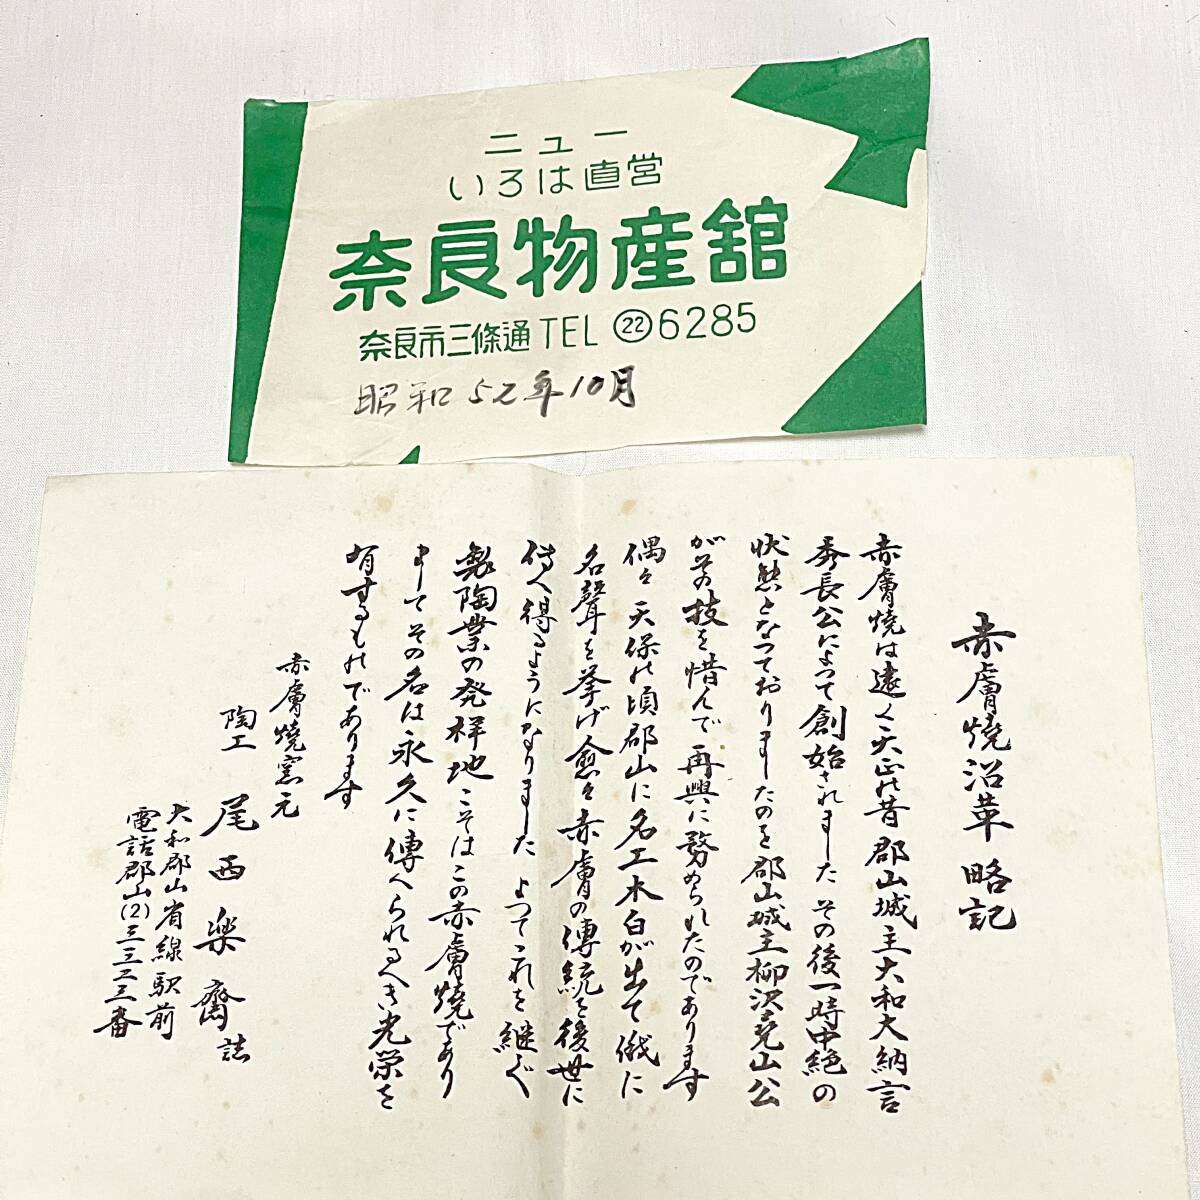 ニュー
いろは直営
奈良物産舘
奈良市三條通 TEL ㉒6285
昭和52年10月
赤膚焼沿革略記
赤膚焼は遠く天正の昔郡山城主大和大納言
秀長公によって創始されました その後一時中絶の
状態となつておりましたのを郡山城主柳沢尭山公
がその技を惜んで再興に努められたのであります
偶々天保の頃郡山に名工木白が出て俄に
名聲を挙げ愈々赤膚の傳統を後世に
傳へ得るようになりました よつてこれを継ぐ
製陶業の発祥地こそはこの赤膚焼であり
ましてその名は永久に傳へられるべき光栄を
有するものであります
赤膚焼窯元
陶工 尾西楽斎誌
大和郡山省線駅前
電話郡山(2)三三二三番